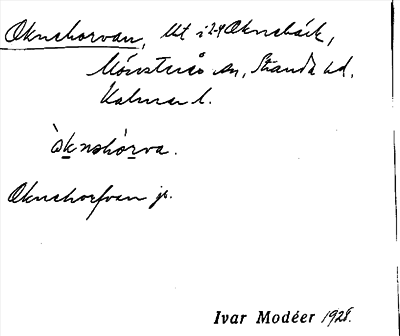 Oknehorvan, Ut i 2-4 Oknebäck,
Mönsterås sn, Stranda hd.
Kalmar l.
òknəhórva.
Oknehorfvan jb.
Ivar Modéer 1928.